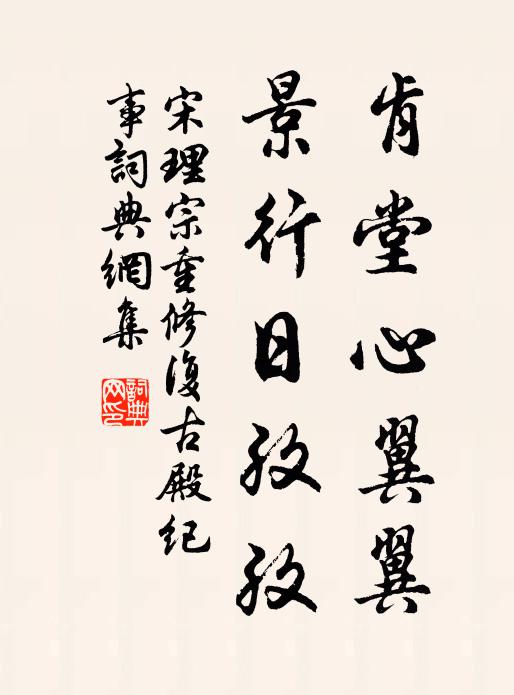 肯堂心翼翼
景行日孜孜
宋理宗重修復古殿紀
事詞典網集
詞典
网印